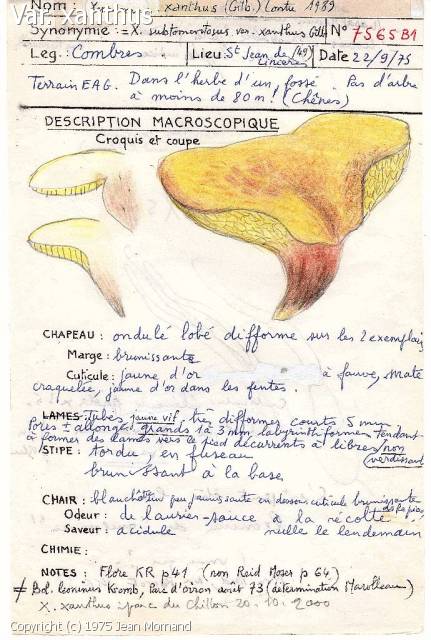 Var. xanthus
Nom : xanthus (Gilb.) Contu 1989
Synonymie : = X. subtomentosus var. xanthus Gilb N° 7565B1
Leg. : Combres Lieu : St Jean de (49) Linières Date 22/9/75
Terrain EAG. Dans l'herbe d'un fossé. Pas d'arbre
à moins de 80 m. (Chênes)
DESCRIPTION MACROSCOPIQUE
Croquis et coupe
CHAPEAU : ondulé lobé difforme sur les 2 exemplaires
Marge : brunissante
Cuticule : jaune d'or à fauve, mate
craquelée, jaune d'or dans les fentes.
LAMES : Tubes jaune vif, très difformes courts 5 mm
Pores ± allongés grands 1 à 3 mm labyrinthiformes tendant
à former des lames vers le pied décurrents à libres non
verdissant
STIPE : tordu, en fuseau
brunissant à la base
CHAIR : blanchâtre peu jaunissante en dessous cuticule brunissante
Odeur : de laurier-sauce à la récolte
nulle le lendemain
Saveur : acidule
CHIMIE :
NOTES : Flore KR p41 (non Reid Moser p 64)
≠ Bol. leoninus Kromb, Parc d'oiron août 73 (détermination Marolleau)
X. xanthus : parc du Chillon 20.10.2000
Copyright (c) 1975 Jean Mornand